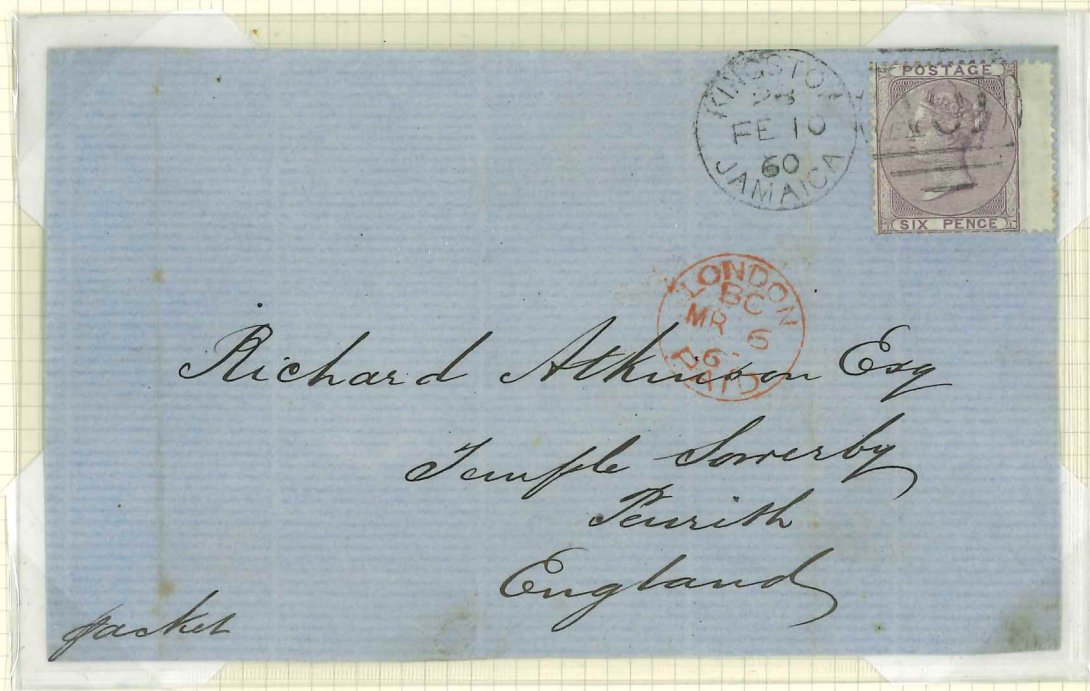 KINGSTON
FE 10
60
JAMAICA
POSTAGE
A01
SIX PENCE
LONDON
BC
MR 6
6
PAID
Richard Atkinson Esq
Temple Sowerby
Penrith
England
packet